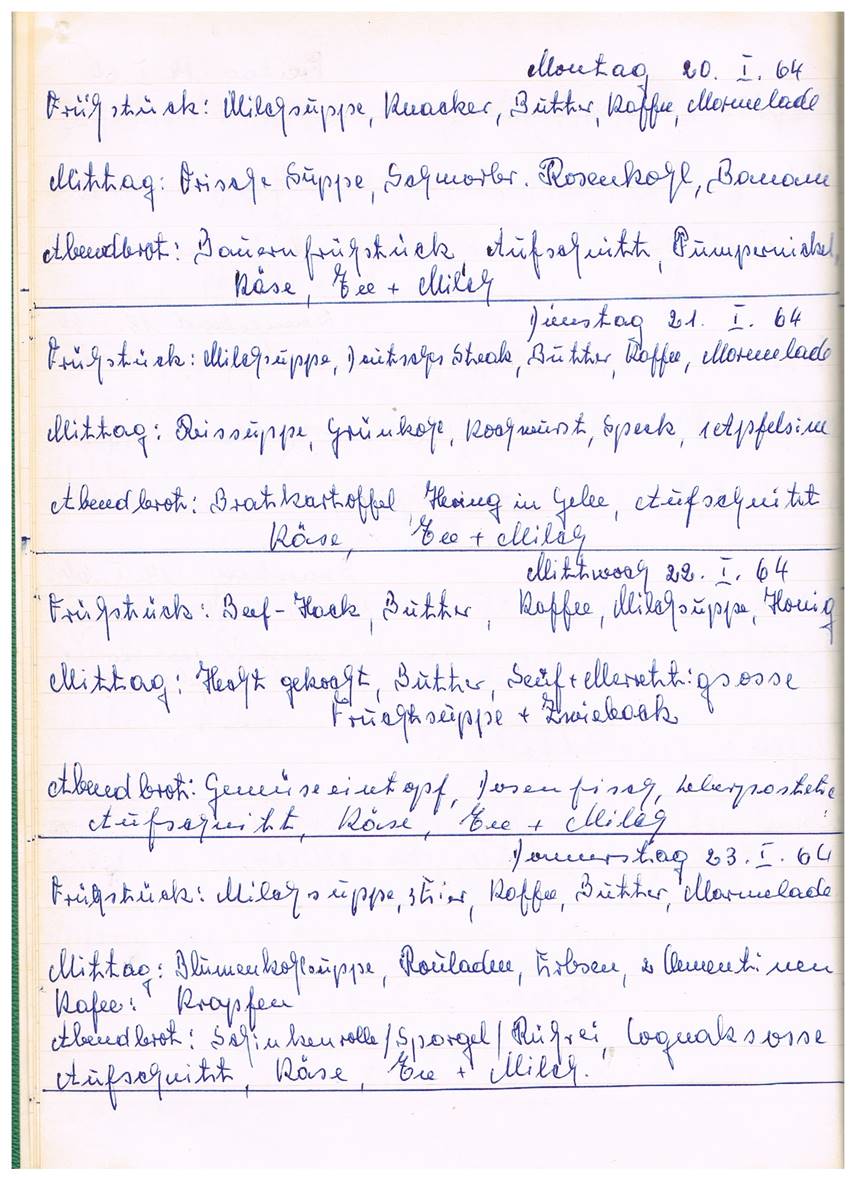 Montag 20. I. 64
Frühstück: Milchsuppe, Knacker, Butter, Kaffee, Marmelade
Mittag: Frische Suppe, Schmorbr. Rosenkohl, Banane
Abendbrot: Bauernfrühstück, Aufschnitt, Pumpernickel,
Käse, Tee + Milch
Dienstag 21. I. 64
Frühstück: Milchsuppe, Deutsches Steak, Butter, Kaffee, Marmelade
Mittag: Reissuppe, Grünkohl, Kochwurst, Speck, 1 Apfelsine
Abendbrot: Bratkartoffel, Hering in Gelee, Aufschnitt
Käse, Tee + Milch
Mittwoch 22. I. 64
Frühstück: Beef-Hack, Butter, Kaffee, Milchsuppe, Honig
Mittag: Hecht gekocht, Butter, Senf + Merrettigsosse
Fruchtsuppe + Zwieback
Abendbrot: Gemüseeintopf, Dosenfisch, Leberpastete
Aufschnitt, Käse, Tee + Milch
Donnerstag 23. I. 64
Frühstück: Milchsuppe, 3 Eier, Kaffee, Butter, Marmelade
Mittag: Blumenkohlsuppe, Rouladen, Erbsen, 2 Clementinen
Kafee: Krapfen
Abendbrot: Schinkenrolle/Spargel/Rührei, Cognaksosse
Aufschnitt, Käse, Tee + Milch.